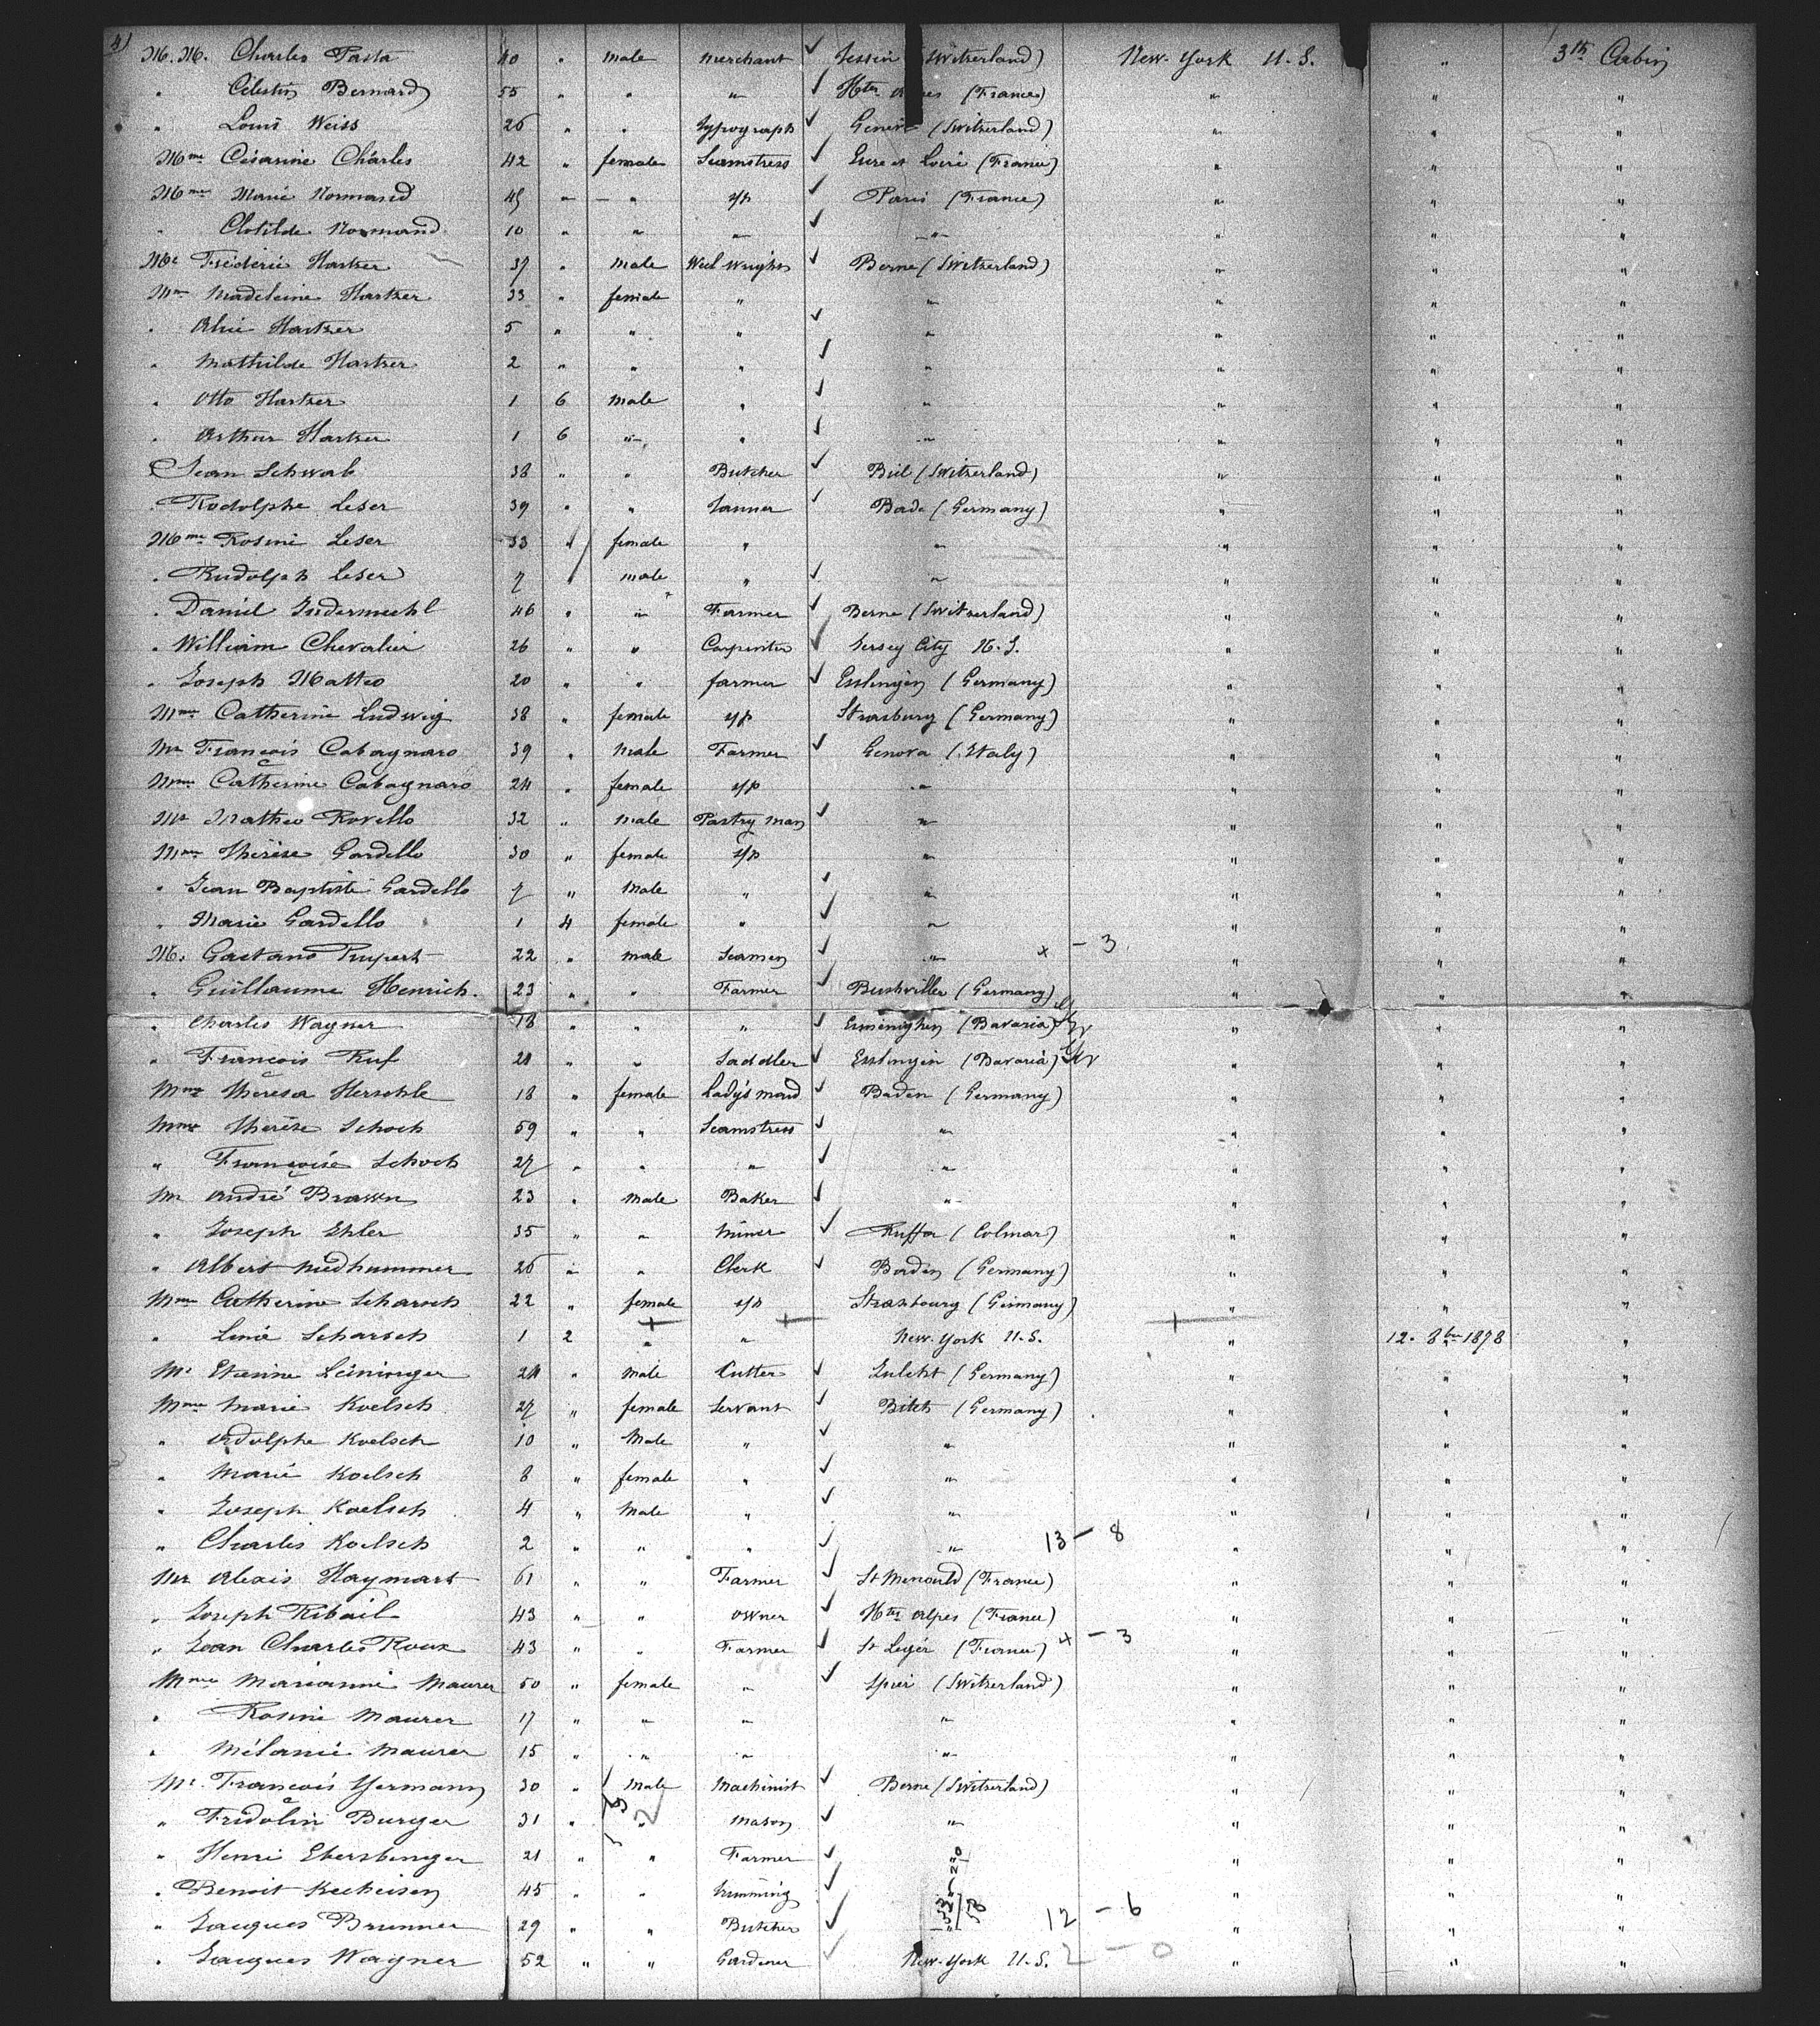 4)
M. M. Charles Pasta 40 " male merchant ✓ Tessin (Switzerland) New-York U.S. " 3th Cabin
" Célestin Bernard 55 " " " ✓ Htes (France) " " "
" Louis Weiss 26 " " Typograph ✓ Genève (Switzerland) " " "
Mme Césarine Charles 42 " female Seamstress ✓ Eure et Loire (France) " " "
Mme Marie Normand 45 " " s/p ✓ Paris (France) " " "
" Clotilde Normand 10 " " " ✓ " " " "
Mr Fréderic Hartzer 37 " male Weel Wright ✓ Berne (Switzerland) " " "
Mme Madeleine Hartzer 33 " female " " " " "
" Hartzer 5 " " " ✓ " " " "
" Mathilde Hartzer 2 " " " ✓ " " " "
" Otto Hartzer 1 6 male " ✓ " " " "
" Arthur Hartzer 1 6 " " ✓ " " " "
Jean Schwab 38 " " Butcher ✓ Biel (Switzerland) " " "
" Rodolphe Leser 39 " " Tanner ✓ Bade (Germany) " " "
Mme Rosine Leser 33 " female " " " " "
" Rudolph Leser 7 " male " ✓ " " " "
" Daniel Indermuehl 46 " " Farmer ✓ Berne (Switzerland) " " "
" William Chevalier 26 " " Carpenter ✓ Jersey City N.J. " " "
" Joseph Matteo 20 " " farmer ✓ Esslingen (Germany) " " "
Mme Catherine Ludwig 38 " female s/p Strasburg (Germany) " " "
Mr François Cabagnaro 39 " Male Farmer ✓ Genova (Italy) " " "
Mme Catherine Cabagnaro 24 " female s/p " " " "
Mr Matheo Rovello 32 " male Pastry man ✓ " " " "
Mme Thérèse Gardello 30 " female s/p " " " "
" Jean Baptiste Gardello 7 " Male " ✓ " " " "
" Marie Gardello 1 4 female " ✓ " " " "
M. Gaetano Rupert 22 " male Seamen ✓ " x - 3 " " "
" Guillaume Henrich. 23 " " Farmer ✓ Bushviller (Germany) " " "
" Charles Wagner 18 " " " ✓ (Bavaria) " " "
" François Ruf 21 " " Saddler ✓ Esslingin (Bavaria) " " "
Mme Theresa Herschle 18 " female Lady's maid ✓ Baden (Germany) " " "
Mme Thérèse Schoch 59 " " Seamstress ✓ " " " "
" Françoise Schoch 27 " " " ✓ " " " "
Mr André Brawn 23 " Male Baker ✓ " " " "
" Joseph Ehler 35 " " miner ✓ Ruffa (Colmar) " " "
" Albert Niedhammer 26 " " Clerk ✓ Baden (Germany) " " "
Mme Catherine Scharsch 22 " female s/p Strasbourg (Germany) " " "
" Scharsch 1 2 " " New-York U.S. " 12. 8bre 1878 "
Mr Etienne Leininger 24 " Male Cutter ✓ (Germany) " " "
Mme Marie Koelsch 27 " female Servant ✓ Bitch (Germany) " " "
" Adolphe Koelsch 10 " Male " ✓ " " " "
" Marie Koelsch 8 " female " ✓ " " " "
" Joseph Koelsch 4 " Male " ✓ " " " "
" Charles Koelsch 2 " " " ✓ " 13 - 8 " " "
Mr Alexis Haymart 61 " " Farmer ✓ St Menould (France) " " "
" Joseph Ribail 43 " " owner ✓ Htes Alpes (France) " " "
" Jean Charles Roux 43 " " Farmer ✓ St Legér (France) x - 3 " " "
Mme Marianne Maurer 50 " female " ✓ Spier (Switzerland) " " "
" Rosine Maurer 17 " " " " " " "
" Mélanie Maurer 15 " " " " " " "
Mr. François Yermann 30 " Male Machinist ✓ Berne (Switzerland) " " "
" Fridolin Burger 31 " " Mason ✓ " " " "
" Henri Ebersbenger 21 " " Farmer ✓ " " " "
" Benoit Kecheisen 45 " " ✓ " " " "
" Jacques Brunner 29 " " Butcher ✓ " 12 - 6 " " "
" Jacques Wagner 52 " " Gardener ✓ New-York U.S. 2 - 0 " " "